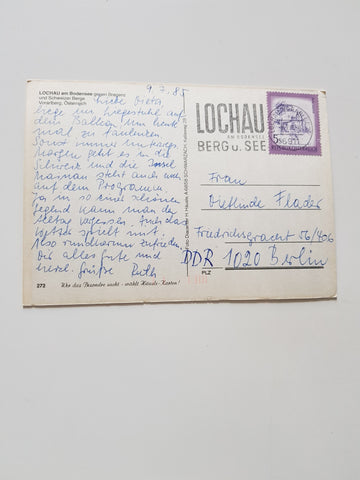 LOCHAU am Bodensee gegen Bregenz
und Schweizer Berge
Vorarlberg, Österreich
9.7.85
Liebe Dieta,
liege im Liegestuhl auf
dem Balkon um heut
mal zu faulenzen
Sonst immer unterwegs
Morgen geht es in die
Schweiz und die Insel
Mainau steht auch noch
auf dem Programm
Ja in so einer schönen
Gegend kann man den
Alltag vergessen. Auch das
Wetter spielt mit.
Also rundherum zufrieden
Dir alles Gute und
herzl. Grüße Ruth
272 Wer das Besondere sucht - wählt Häusle-Karten!
LOCHAU
AM BODENSEE
BERG u. SEE
Frau
Dietlinde Flader
Friedrichsgracht 56/406
DDR 1020 Berlin
PLZ